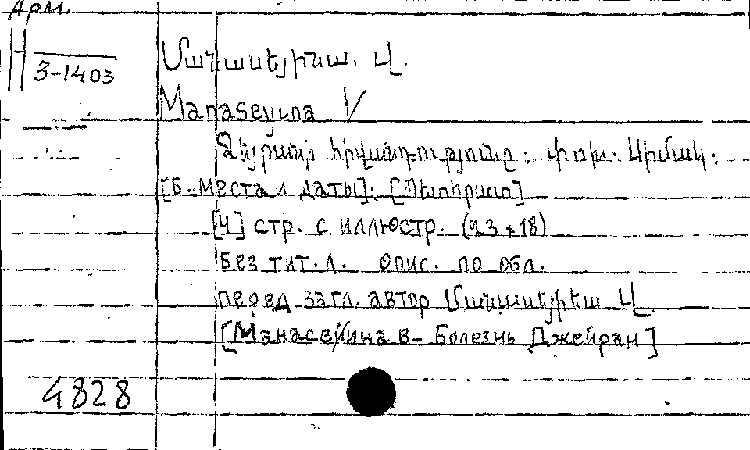 Арм.
H
3-1403
Մանասեյինա. Վ.
Manasevina V
Ջեյրանի հիվանդությունը:
[Б. места и даты]. [Պետհրատ]
[4] стр. с иллюстр. (23×18)
Без тит. л. Опис. по обл.
перед загл. автор Մանասեյինա Վ
[Манасеина В- Болезнь Джейран]
4828